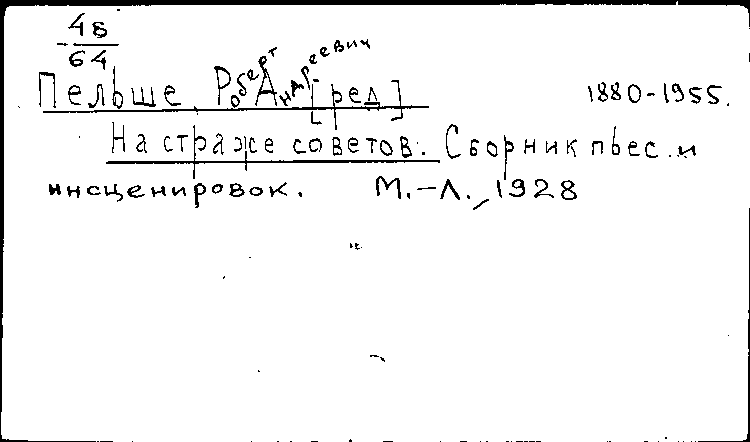 48
64
Пельше, Роберт Андреевич [ред] 1880-1955.
На страже советов. Сборник пьес и
инсценировок. М.-Л., 1928